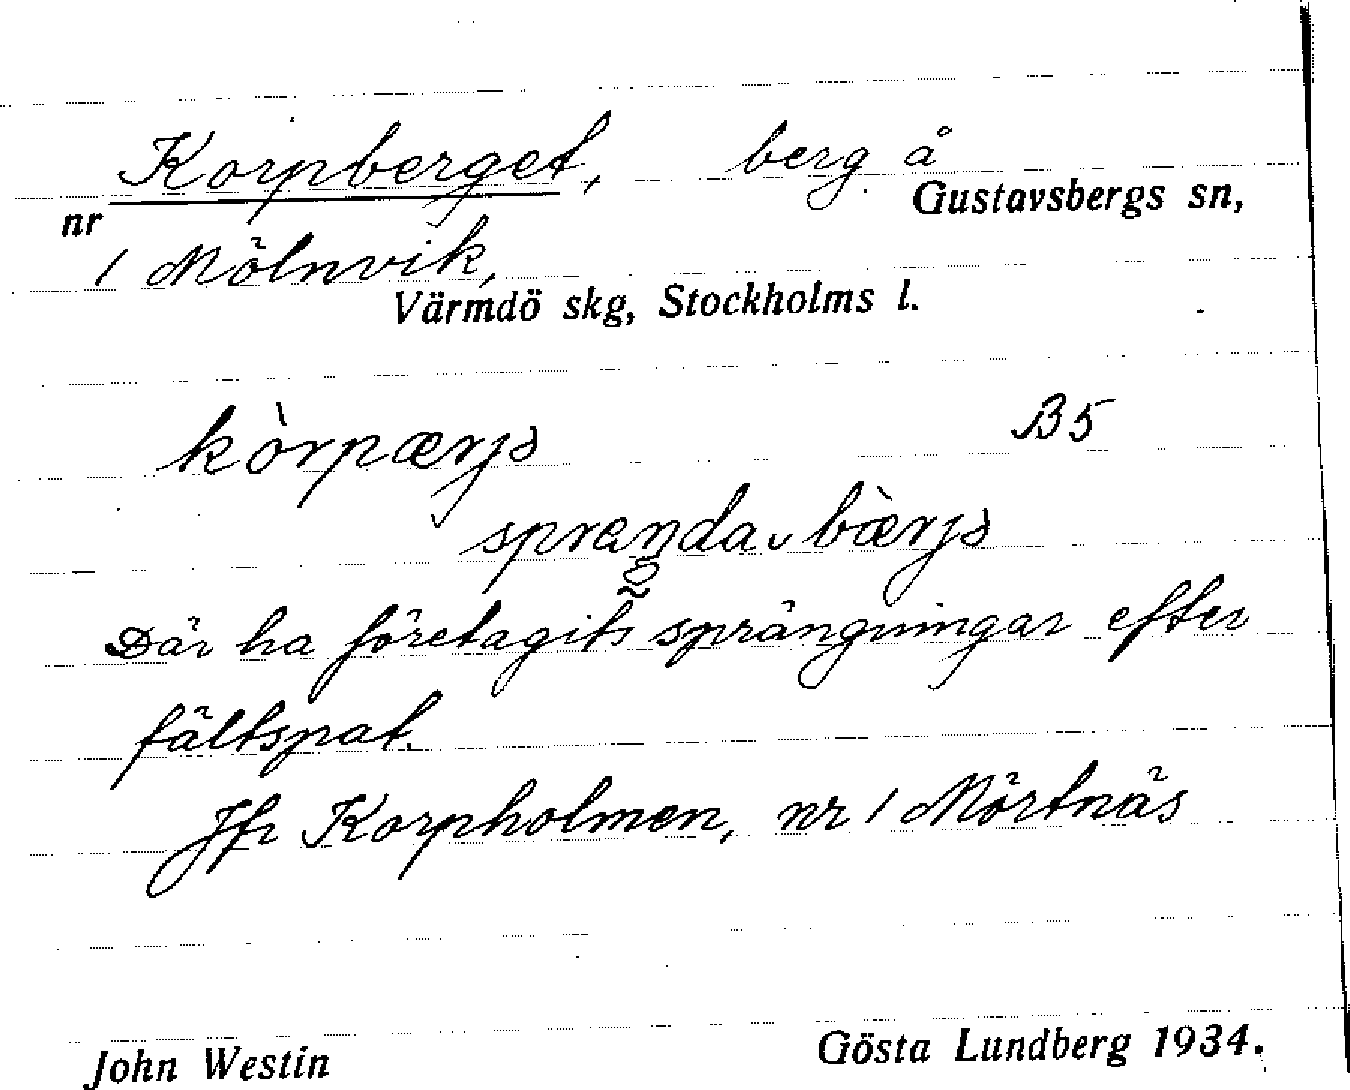 Korpberget, berg å
Gustavsbergs sn,
nr
1 Mölnvik,
Värmdö skg, Stockholms l.
kòrpærjə B5
sprεŋda bærjə
Där ha företagits sprängningar efter
fältspat.
Jfr Korpholmen, nr 1 Mörtnäs
John Westin Gösta Lundberg 1934.